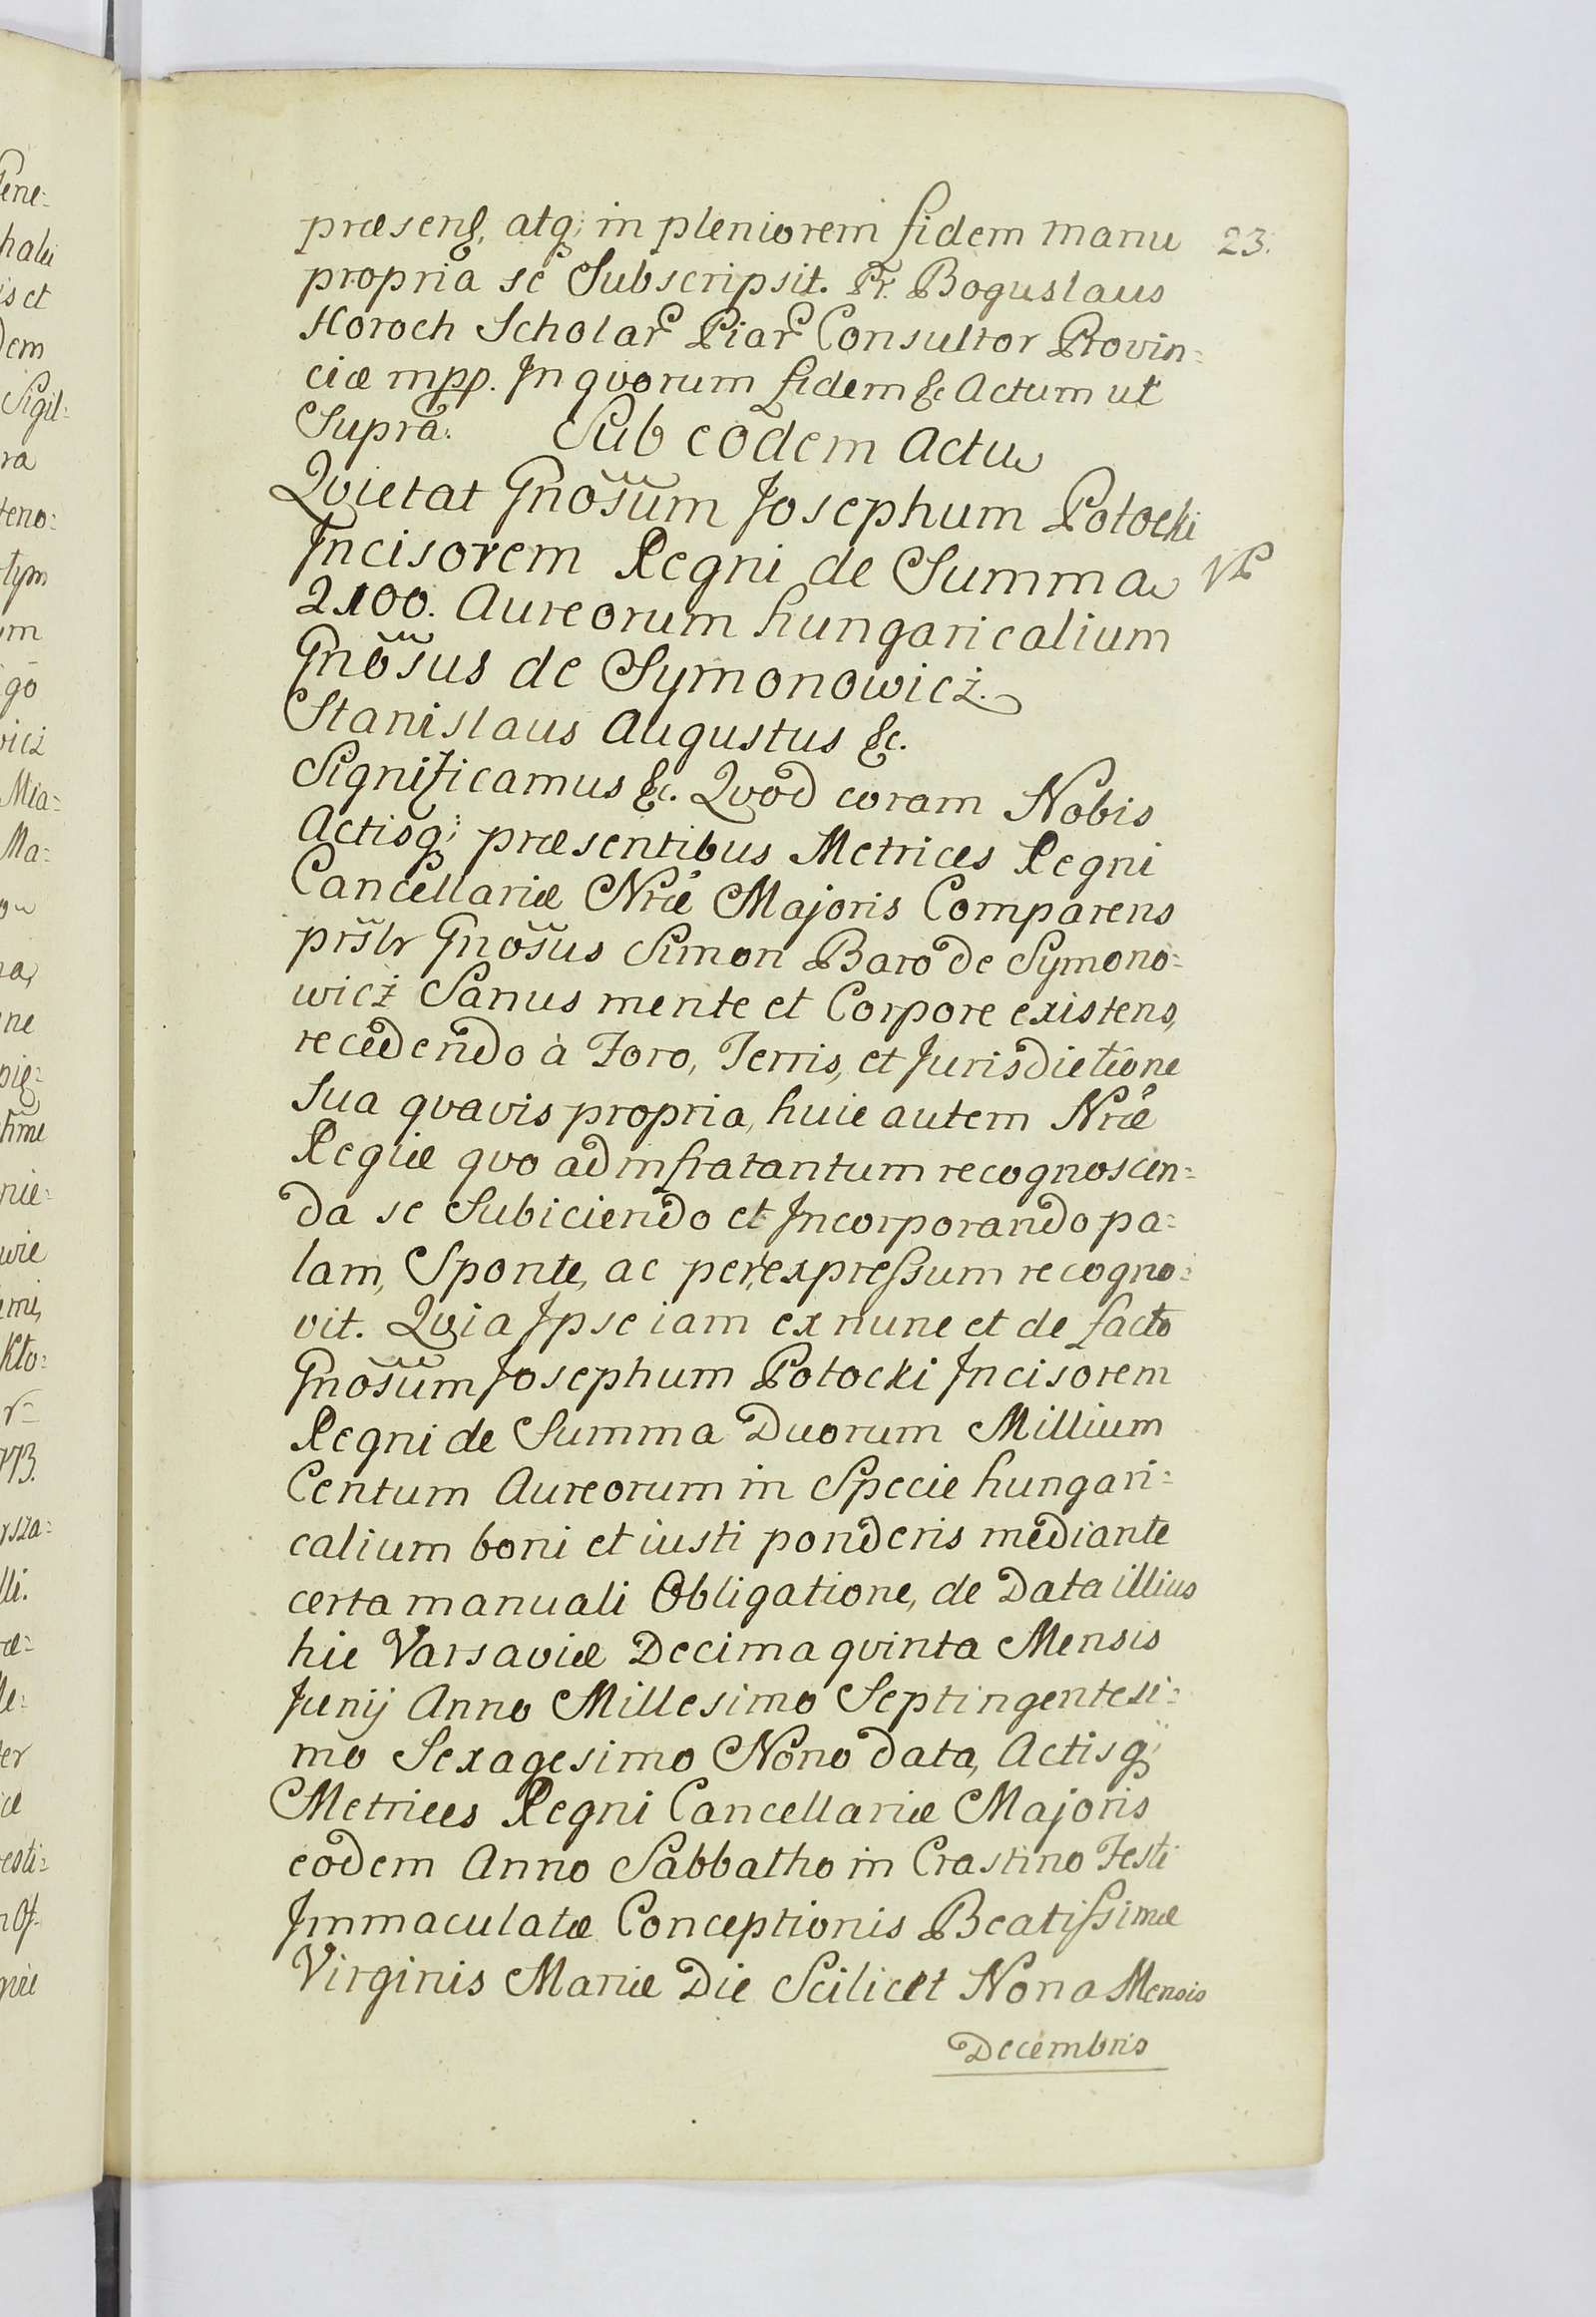 præsens, atq; in pleniorem fidem manu 23.
propria se Subscripsit. Pr. Boguslaus
Horoch Scholar Piar Consultor Provin=
ciæ mpp. In qvorum fidem &c Actum ut
Supra. Sub eodem Actu
Qvietat Gnõsum Josephum Potocki
Incisorem Regni de Summa
2100. Aureorum hungaricalium
Gnõsus de Symonowicż.
Stanislaus Augustus &c.
Significamus &c. Qvod coram Nobis
Actisq; præsentibus Metrices Regni
Cancellariæ Nræ Majoris Comparens
prsltr Gnõsus Simon Baro de Symono=
wicż Sanus mente et Corpore existens,
recedendo à Foro, Terris, et Jurisdictõne
Sua qvavis propria, huic autem Nræ
Regiæ qvo ad infratantum recognoscen=
da se Subiciendo et Incorporando pa=
lam, Sponte, ac per expressum recogno=
vit. Qvia Ipse iam ex nunc et de facto
Gnõsum Josephum Potocki Incisorem
Regni de Summa Duorum Millium
Centum Aureorum in Specie hungari=
calium boni et iusti ponderis mediante
certa manuali Obligatione, de Data illius
hic Varsaviæ Decima qvinta Mensis
Junij Anno Millesimo Septingentesi=
mo Sexagesimo Nono data, Actisq;
Metrices Regni Cancellariæ Majoris
eodem Anno Sabbatho in Crastino Festi
Immaculatæ Conceptionis Beatissimæ
Virginis Mariæ Die Scilicet Nona Mensis
Decembris